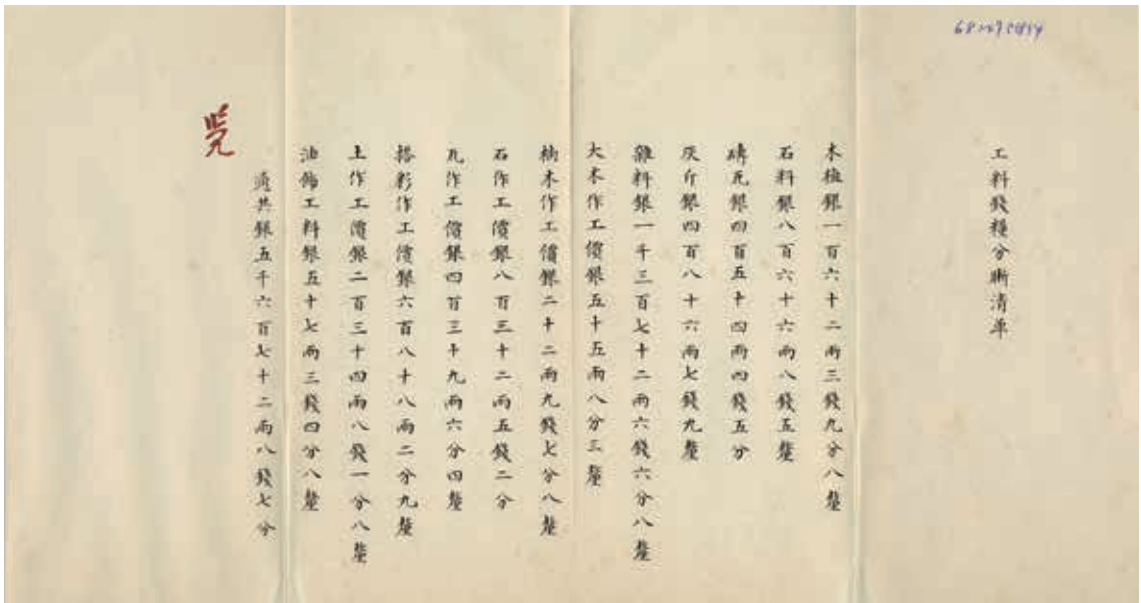 工料錢糧分晰清單
木植銀一百六十二兩三錢九分八釐
石料銀八百六十六兩八錢五釐
磚瓦銀四百五十四兩四錢五分
灰斤銀四百八十六兩七錢九釐
雜料銀一千三百七十二兩六錢六分八釐
大木作工價銀五十五兩八分三釐
楠木作工價銀二十二兩九錢七分八釐
石作工價銀八百三十二兩五錢二分
瓦作工價銀四百三十九兩六分四釐
搭彩作工價銀六百八十八兩二分九釐
土作工價銀二百三十四兩八錢一分八釐
油飾工料銀五十七兩三錢四分八釐
通共銀五千六百七十二兩八錢七分
覽